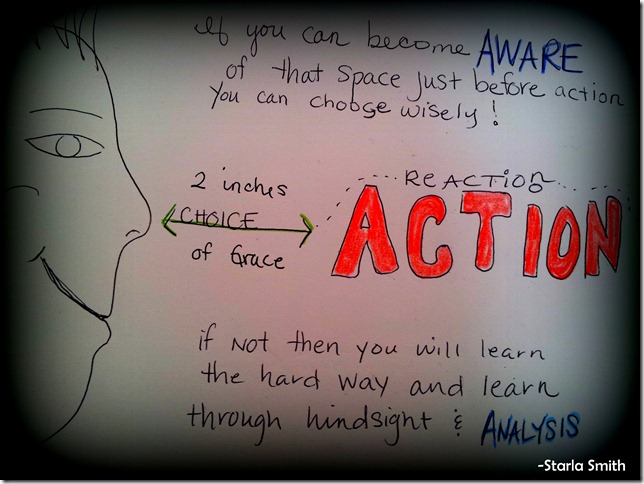 If you can become AWARE
of that space just before action
you can choose wisely!
REACTION
2 inches
CHOICE
of Grace
ACTION
if Not then you will learn
the hard way and learn
through hindsight & ANALYSIS
-Starla Smith